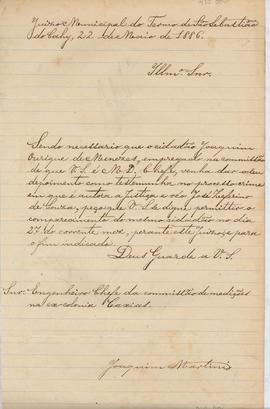 Juizo Municipal do Termo de São Sebastião
do Cahy, 22 de Maio de 1886.
Illmº Snr.
Sendo necessario que o cidadão Joaquim
Ourique de Menezes, empregado na commissão
de que V. S. é M. D. Chefe, venha dar o seu
depoimento como testemunha, no processo crime
em que é autora a Justiça e réo José Zeferino
de Souza, peço que V. S. se digne permittir o
comparecimento do mesmo cidadão no dia
27 do corrente mez, perante este Juizo e para
o fim indicado.
Deus Guarde a V. S.
Snr. Engenheiro Chefe da commissão de medições
na ex-colonia Caxias.
Joaquim Martins